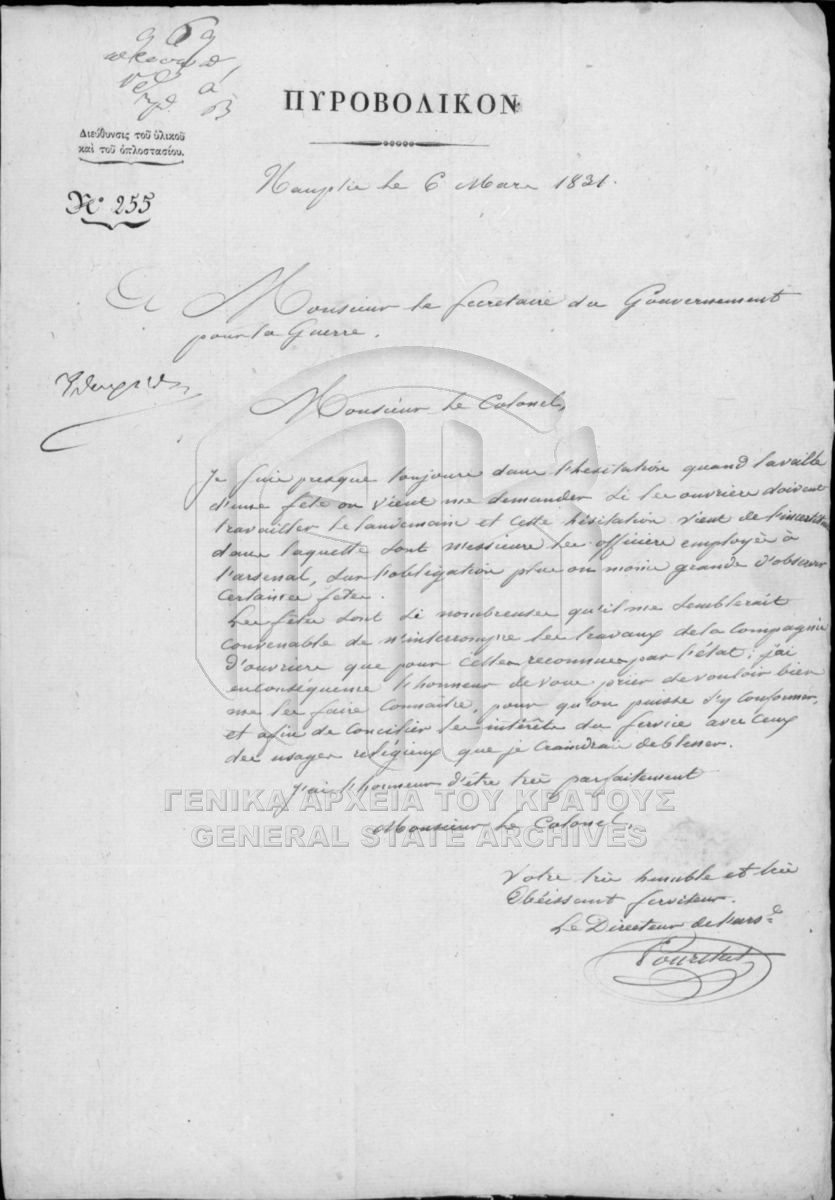 ΠΥΡΟΒΟΛΙΚΟΝ
Διεύθυνσις τοῦ ὑλικοῦ
καὶ τοῦ ὁπλοστασίου.
Nº 255
Nauplie le 6 Mars 1831.
A Monsieur le Secretaire du Gouvernement
pour la Guerre.
Monsieur le Colonel,
Je suis presque toujours dans l'hesitation quand la veille
d'une fête on vient me demander si les ouvriers doivent
travailler le lendemain et cette hésitation vient de l'incertitude
dans laquelle sont messieurs les officiers employés à
l'arsenal, sur l'obligation plus ou moins grande d'observer
certaines fêtes.
Les fêtes sont si nombreuses qu'il me semblerait
convenable de n'interrompre les travaux de la compagnie
d'ouvriers que pour celles reconnues par l'état; j'ai
en conséquence l'honneur de vous prier de vouloir bien
me les faire connaitre, pour qu'on puisse s'y conformer,
et afin de concilier les intérêts du service avec ceux
des usages religieux que je craindrais de blesser.
J'ai l'honneur d'être très parfaitement
Monsieur le Colonel,
ΓΕΝΙΚΑ ΑΡΧΕΙΑ ΤΟΥ ΚΡΑΤΟΥΣ
GENERAL STATE ARCHIVES
Votre très humble et très
Obéissant serviteur.
Le Directeur de l'ars.